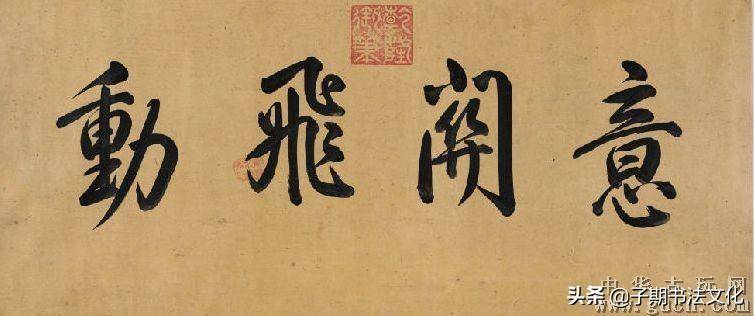 意開飛動
中华古玩网
www.gucn.com
头条 @子期书法文化